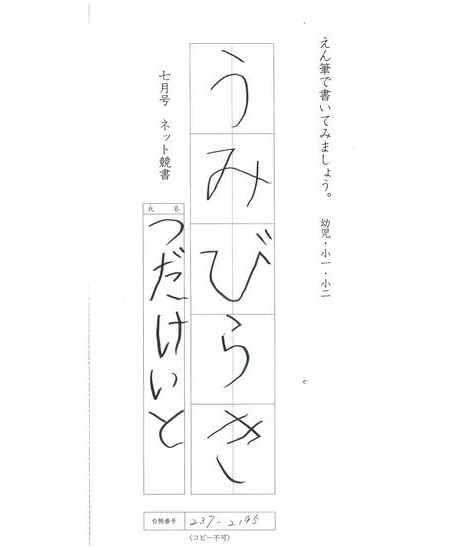 えん筆で書いてみましょう。 幼児・小一・小二
うみびらき
七月号 ネット競書
氏名
つだけいと
台帳番号 237-2195
(コピー不可)